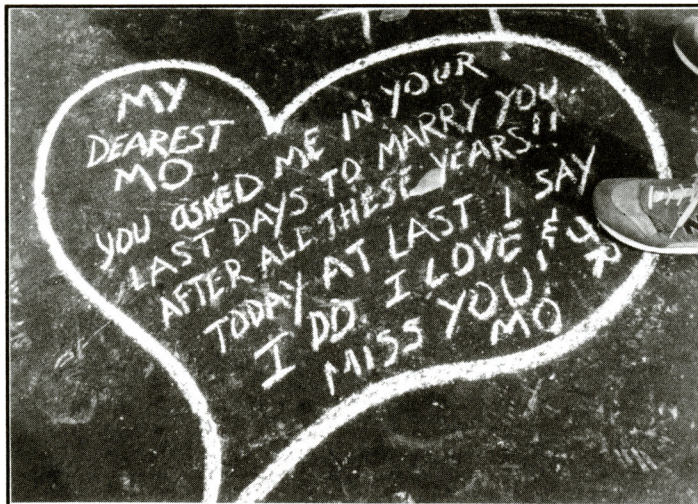 MY
DEAREST
MO.
YOU ASKED ME IN YOUR
LAST DAYS TO MARRY YOU
AFTER ALL THESE YEARS!!
TODAY AT LAST I SAY
I DO. I LOVE &
MISS YOU!
MO